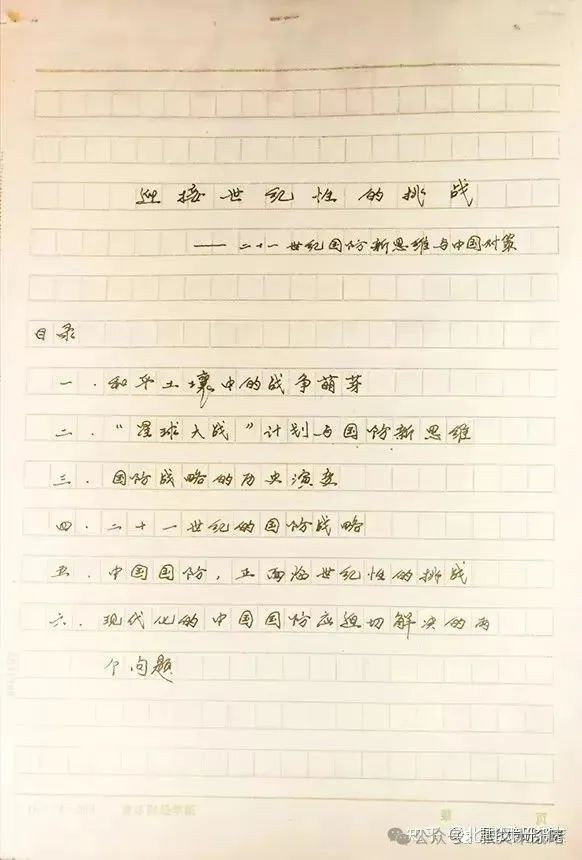 迎接世纪性的挑战
——二十一世纪国防新思维与中国对策
目录
一.和平土壤中的战争萌芽
二."星球大战"计划与国防新思维
三.国防战略的历史演变
四.二十一世纪的国防战略
五.中国国防,正面临世纪性的挑战
六.现代化的中国国防应迫切解决的两
个问题
第 页